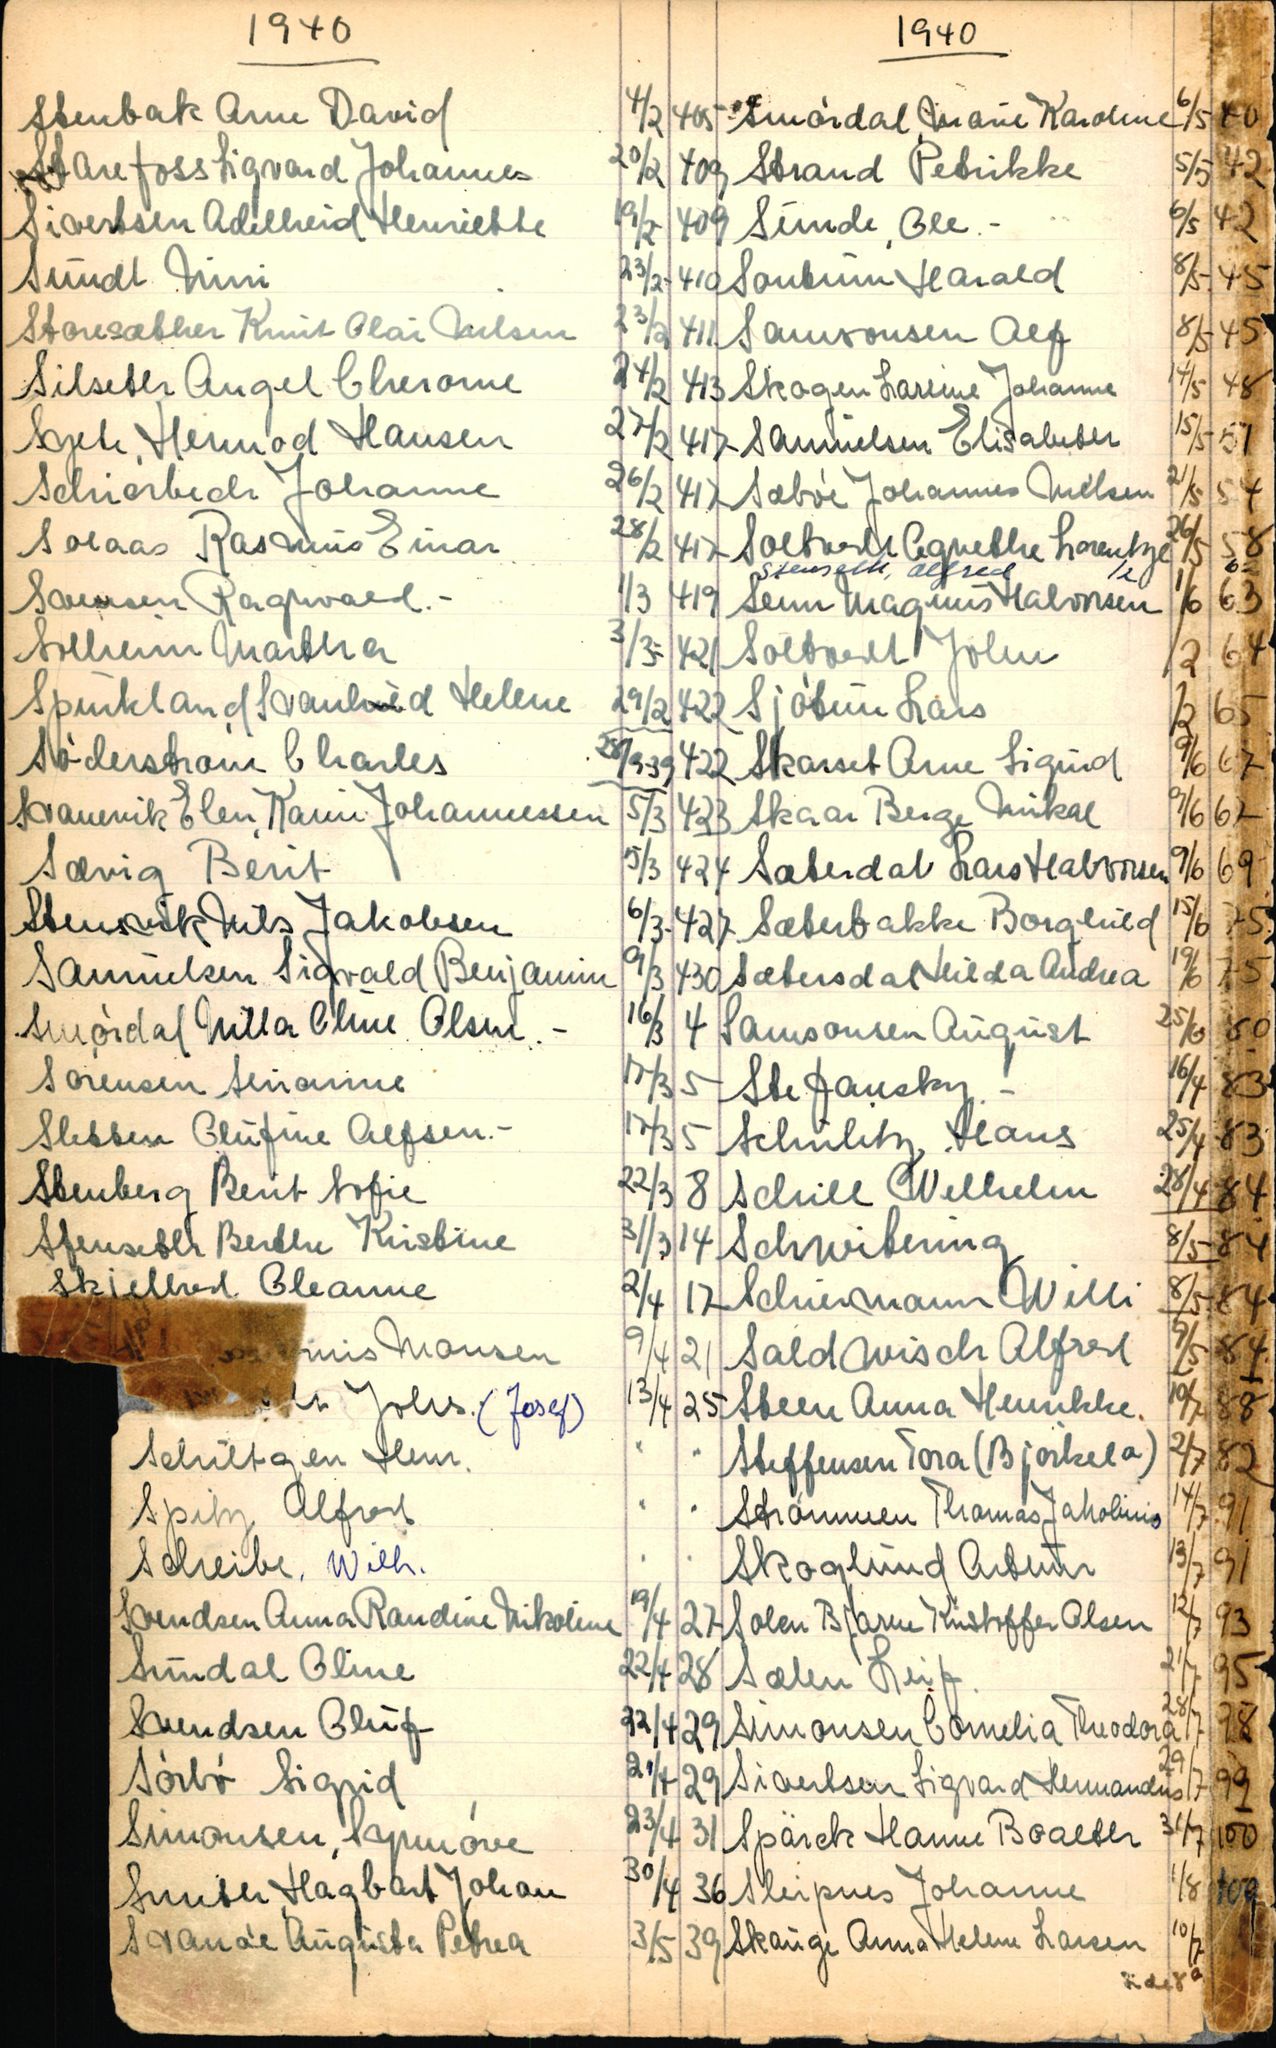 1940
Stenbak Arne David 4/2 405
Starefoss Sigvard Johannes 20/2 409
Sivertsen Adelheid Henriette 19/2 409
Sundt Nini 23/2 410
Storesæther Knut Olai Nilsen 23/2 411
Silseth Angel Cherome 24/2 413
Syeh, Hermod Hansen 27/2 417
Schierbeck Johanne 26/2 417
Solaas Rasmus Einar 28/2 417
Svensen Ragnvald.- 1/3 419
Solheim Martha 3/3 421
Spurkland Svanhild Helene 29/2 422
Söderström Charles 28/9-39 422
Svanevik Elen, Karin Johannessen 5/3 423
Sævig Berit 5/3 424
Stensvik Nils Jakobsen 6/3 427
Samuelsen Sigvald Benjamin 9/3 430
Smördal Nilla Oline Olsen.- 16/3 4
Sorensen Susanne 17/3 5
Sletten Olufine Alfsen.- 17/3 5
Stenberg Berit Sofie 22/3 8
Stenseth Berthe Kristine 31/3 14
Skjelbred Oleanne 2/4 17
Monsen 9/4 21
Johs. (Josef) 13/4 25
Schiltgen Henr. " "
Spitz Alfred " "
Scheibe, Wilh. " "
Svendsen Anna Randine Nikoline 19/4 27
Sundal Oline 22/4 28
Svendsen Oluf 22/4 29
Sörbö Sigrid 21/4 29
Simonsen, Synnöve 23/4 31
Sunter Hagbart Johan 30/4 36
Svanöe Augusta Petrea 3/5 39
1940
Smördal, Marie Karoline 6/5 40
Strand Petrikke 5/5 42
Sunde, Ole.- 6/5 42
Sontum Harald 8/5 45
Samsonsen Alf 8/5 45
Skogen Larine Johanne 14/5 48
Samuelsen Elisabeth 15/5 51
Sæböe Johannes Nilsen 21/5 54
Soltvedt Agnethe Lorentze 26/5 58
Stenseth, Alfred
Senn Magnus Halvorsen 1/6 63
Soltvedt John /2 64
Sjötun Lars /2 65
Skarset Arne Sigurd 9/6 67
Skaar Berge Mikal 9/6 67
Sæterdal Lars Halvorsen 9/6 69
Sæterbakke Borghild 15/6 75
Sætersdal Hilda Andrea 19/6 75
Samsonsen August 25/6 80
Stefansky.- 16/4 83
Schulitz, Hans 25/4 83
Schill Wilhelm 28/4 84
Schwitering 8/5 84
Schiermann Willi 8/5 84
Saldwisch Alfred 9/5 84
Steen Anna Henrikke. 10/7 88
Steffensen Tora (Björkela) 2/7 82
Strömmen Thomas Jakobinus 14/7 91
Skoglund Artur 13/7 91
Solen Bjarne Kristoffer Olsen 12/7 93
Sælen Leif. 21/7 95
Simonsen Cornelia Theodora 28/7 98
Sivertsen Sigvard Hermandus 29/7 99
Spärck Hanne Boaeth 31/7 100
Sleipnes Johanne 1/8 109
Skauge Anna Helene Larsen 10/7